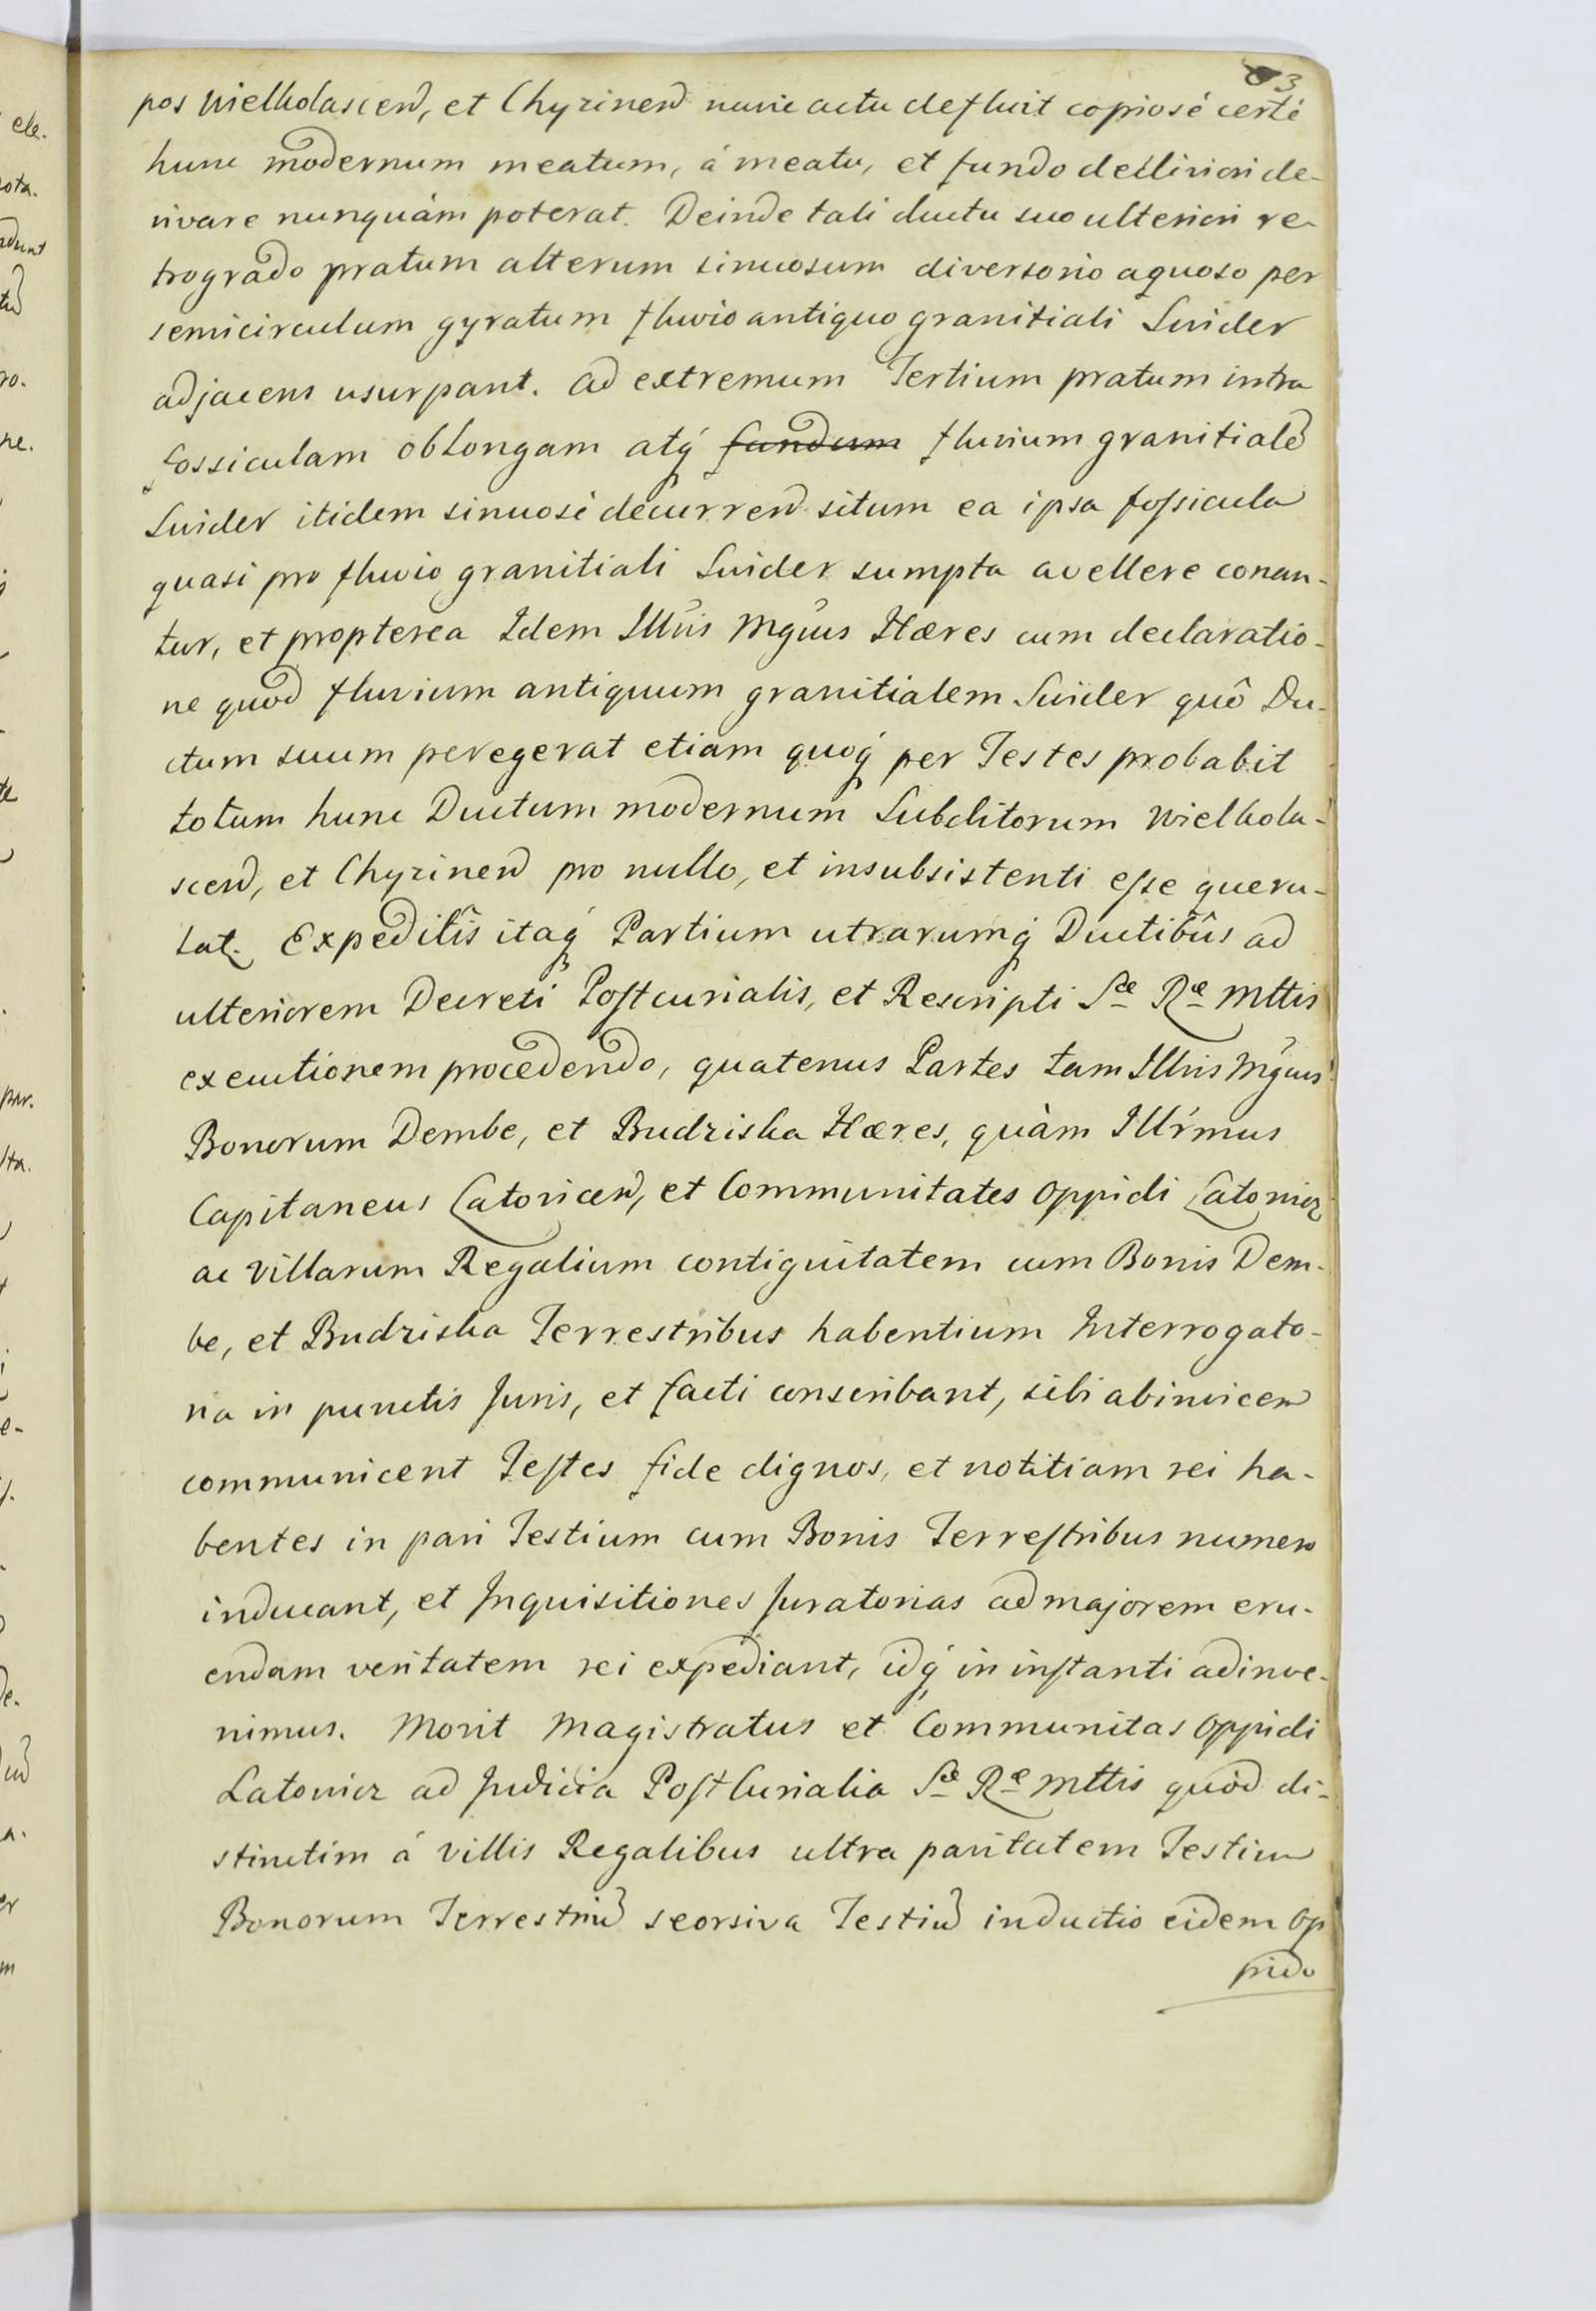 3
pos Wielkolascen, et Chyzinen nunc actu defluit copiosé certé
hunc modernum meatum, á meatu, et fundo declivicri de-
rivare nunquám poterat. Deinde tali ductu suo ulteriori re-
trogrado pratum alterum sinuosum diversorio aquoso per
semicirculum gyratum fluvio antiquo granitiali Swider
adjacens usurpant. Ad extremum Tertium pratum intra
fossiculam oblongam atq́ fundum fluvium granitialē
Swider itidem sinuosé decurren situm ea ipsa foſsicula
quasi pro fluvio granitiali Swider sumpta avellere conan-
tur, et propterea Idem Illris Mgcus Hæres cum declaratio-
ne quod fluvium antiquum granitialem Swider quô Du-
ctum suum peregerat etiam quoq́ per Testes probabit
totum hunc Ductum modernum Subditorum Wielkola-
scen, et Chyzinen pro nullo, et insubsistenti eſse queru-
lat. Expeditîs itaq́ Partium utrarumq́ Ductibûs ad
ulteriorem Decreti Poſtcurialis, et Rescripti Sæ Ræ Mttis
executionem procedendo, quatenus Partes tam Illris Mgcus
Bonorum Dembe, et Budziska Hæres, quàm Illrmus
Capitaneus Latovicen, et Communitates Oppidi Latovicz
ac Villarum Regalium contiguitatem cum Bonis Dem-
be, et Budziska Terrestribus habentium Interrogato-
ria in punctis Juris, et facti conscribant, sibi abinvicem
communicent Teſtes fide dignos, et notitiam rei ha-
bentes in pari Testium cum Bonis Terreſtribus numero
inducant, et Inquisitiones Juratorias ad majorem eru-
endam veritatem rei expediant, idq́ in inſtanti adinve-
nimus. Movit Magistratus et Communitas Oppidi
Latovicz ad Judicia PoſtCurialia Sæ Ræ Mttis quòd di-
stinctim á Villis Regalibus ultra paritatem Testium
Bonorum Terrestriū seorsiva Testiū inductio eidem Op
pido